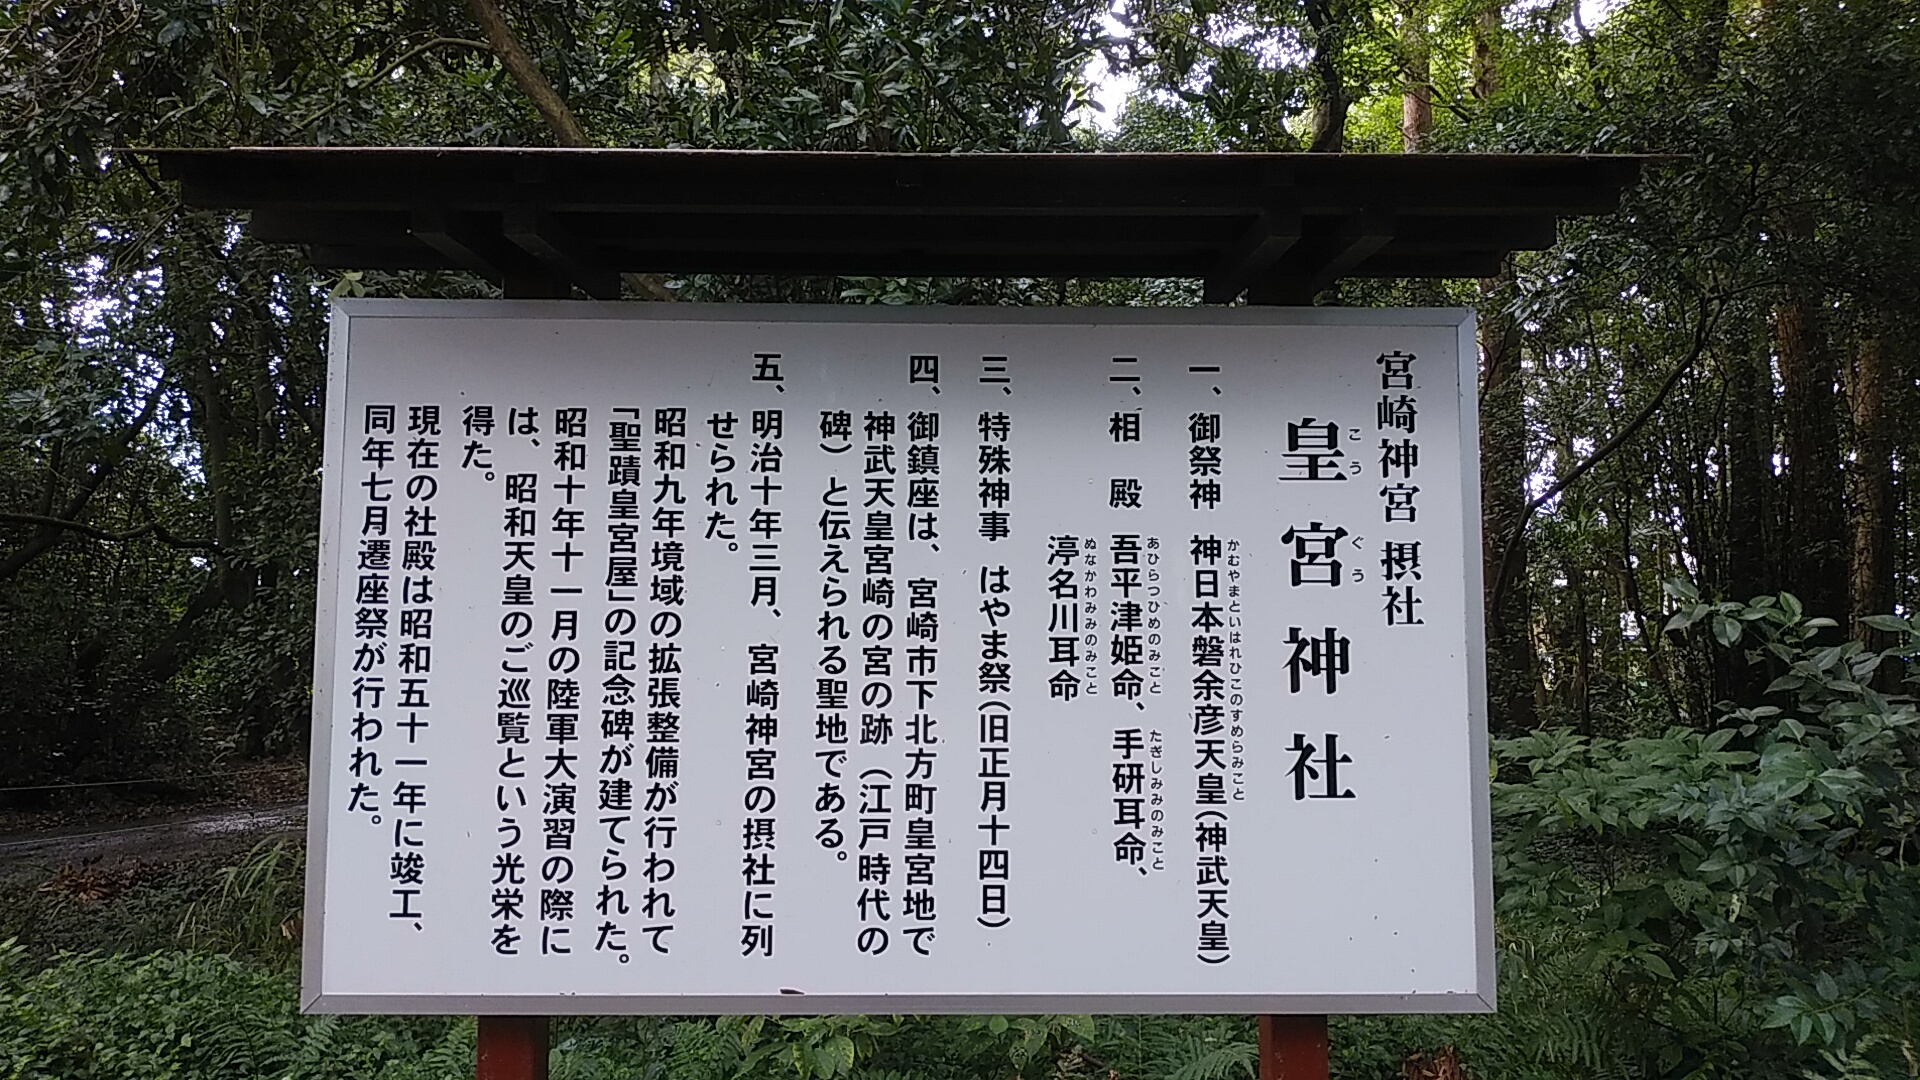 宮崎神宮 摂社
皇宮神社
こうぐう
一、御祭神 神日本磐余彦天皇(神武天皇)
かむやまといはれひこのすめらみこと
二、相殿 吾平津姫命、手研耳命、
あひらつひめのみこと たぎしみみのみこと
渟名川耳命
ぬなかわみみのみこと
三、特殊神事 はやま祭(旧正月十四日)
四、御鎮座は、宮崎市下北方町皇宮地で
神武天皇宮崎の宮の跡(江戸時代の
碑)と伝えられる聖地である。
五、明治十年三月、宮崎神宮の摂社に列
せられた。
昭和九年境域の拡張整備が行われて
「聖蹟皇宮屋」の記念碑が建てられた。
昭和十年十一月の陸軍大演習の際に
は、昭和天皇のご巡覧という光栄を
得た。
現在の社殿は昭和五十一年に竣工、
同年七月遷座祭が行われた。